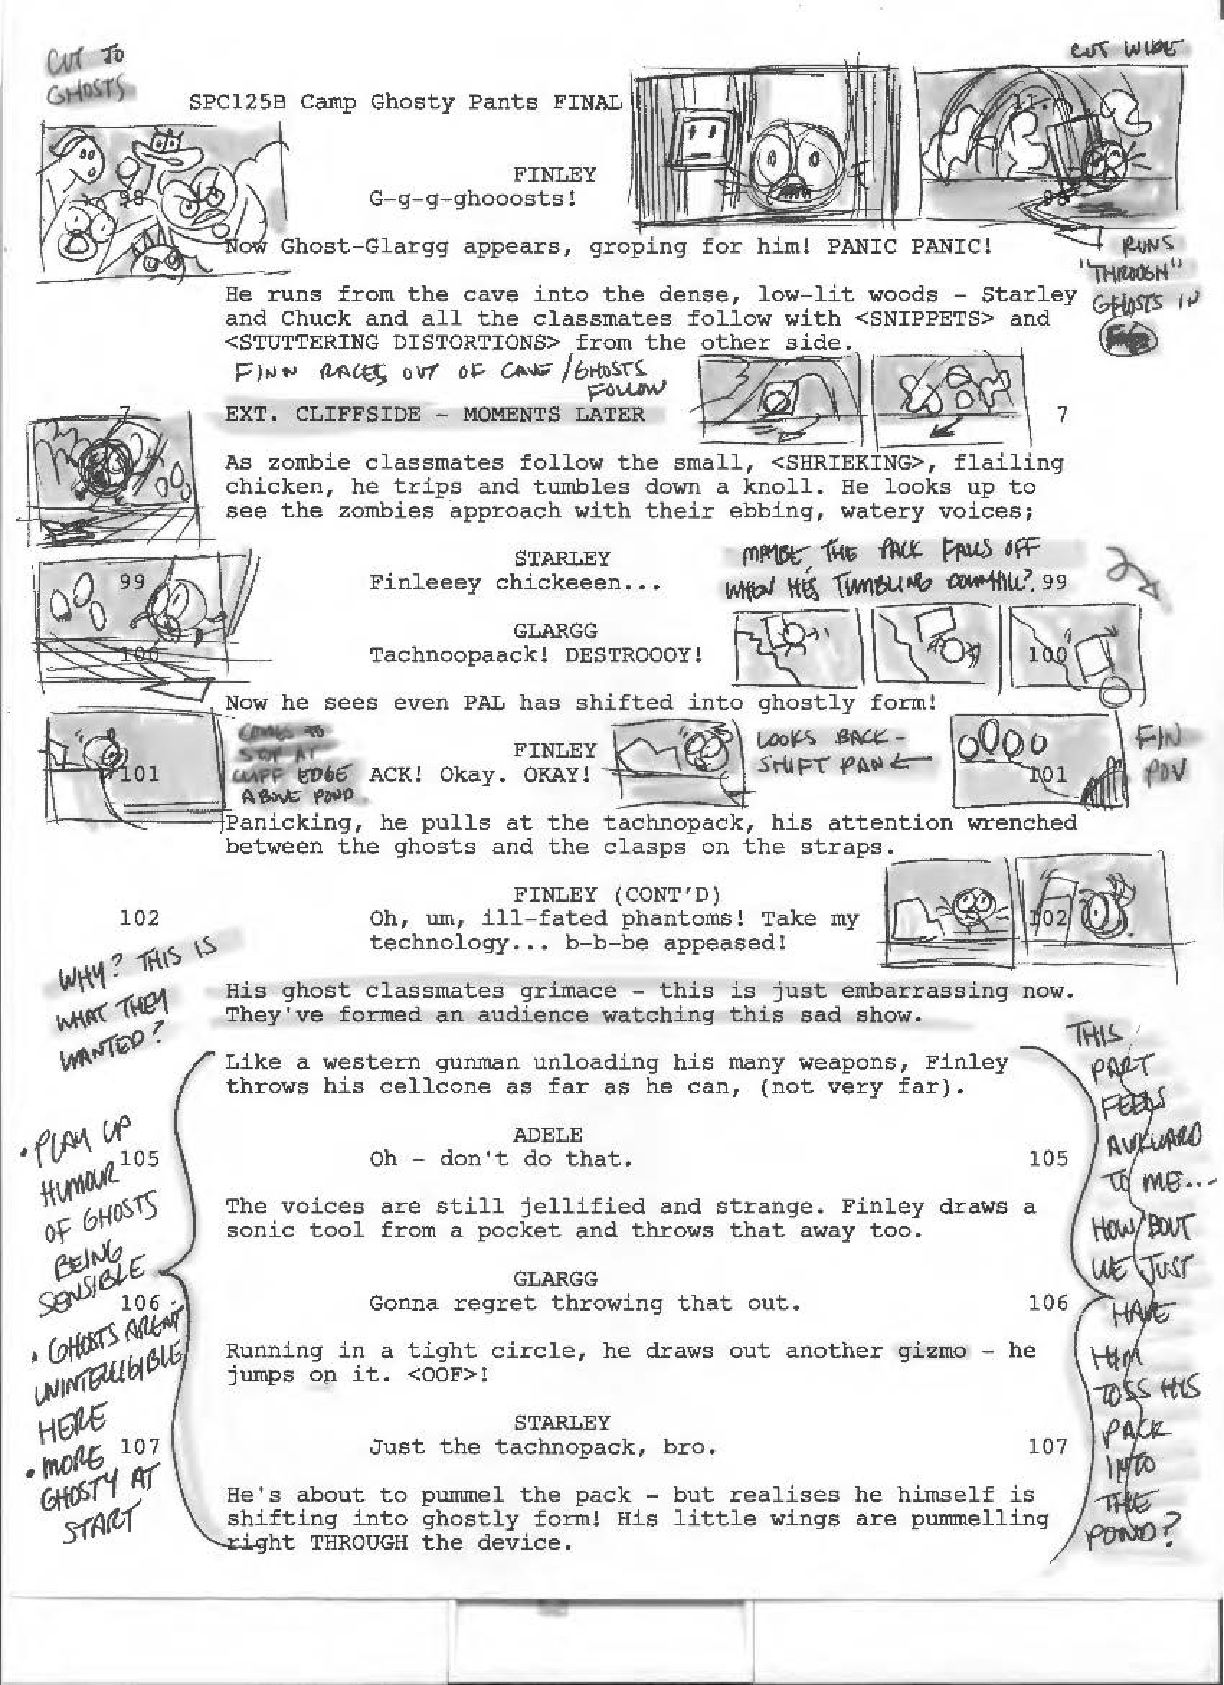 CUT TO
GHOSTS
CUT WIDE
SPC125B Camp Ghosty Pants FINAL
11.
FINLEY
98 G-g-g-ghooosts! 98
Now Ghost-Glargg appears, groping for him! PANIC PANIC!
RUNS
"THROUGH"
GHOSTS IN
He runs from the cave into the dense, low-lit woods - Starley
and Chuck and all the classmates follow with <SNIPPETS> and
<STUTTERING DISTORTIONS> from the other side.
FINN RACES OUT OF CAVE/GHOSTS
FOLLOW
7 EXT. CLIFFSIDE - MOMENTS LATER 7
As zombie classmates follow the small, <SHRIEKING>, flailing
chicken, he trips and tumbles down a knoll. He looks up to
see the zombies approach with their ebbing, watery voices;
STARLEY
99 Finleeey chickeeen... 99
MAYBE, THE PACK FALLS OFF
WHEN HE'S TUMBLING DOWNHILL?
GLARGG
100 Tachnoopaack! DESTROOOY! 100
Now he sees even PAL has shifted into ghostly form!
COMES TO
STOP AT
CLIFF EDGE
ABOVE POND
FINLEY
101 ACK! Okay. OKAY! 101
LOOKS BACK -
SHIFT PAN
FIN
POV
Panicking, he pulls at the tachnopack, his attention wrenched
between the ghosts and the clasps on the straps.
FINLEY (CONT'D)
102 Oh, um, ill-fated phantoms! Take my 102
technology... b-b-be appeased!
WHY? THIS IS
WHAT THEY
WANTED?
His ghost classmates grimace - this is just embarrassing now.
They've formed an audience watching this sad show.
Like a western gunman unloading his many weapons, Finley
throws his cellcone as far as he can, (not very far).
ADELE
105 Oh - don't do that. 105
The voices are still jellified and strange. Finley draws a
sonic tool from a pocket and throws that away too.
GLARGG
106 Gonna regret throwing that out. 106
Running in a tight circle, he draws out another gizmo - he
jumps on it. <OOF>!
STARLEY
107 Just the tachnopack, bro. 107
He's about to pummel the pack - but realises he himself is
shifting into ghostly form! His little wings are pummelling
right THROUGH the device.
• PLAY UP
HUMOUR
OF GHOSTS
BEING
SENSIBLE
• GHOSTS AREN'T
UNINTELLIGIBLE
HERE
• MORE
GHOSTY AT
START
THIS
PART
FEELS
AWKWARD
TO ME...
HOW 'BOUT
WE JUST
HAVE
HIM
TOSS HIS
PACK
INTO
THE
POND?